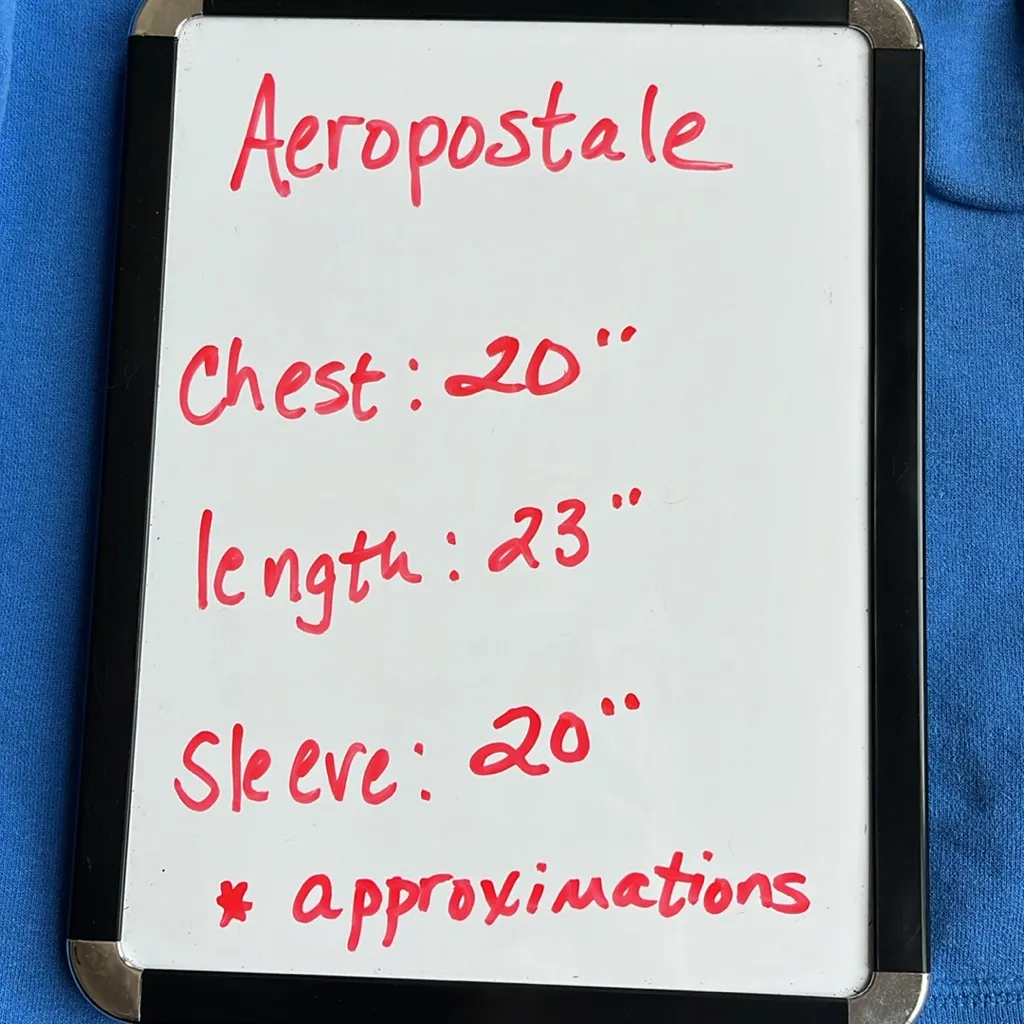 Aeropostale
Chest: 20"
length: 23"
Sleeve: 20"
* approximations